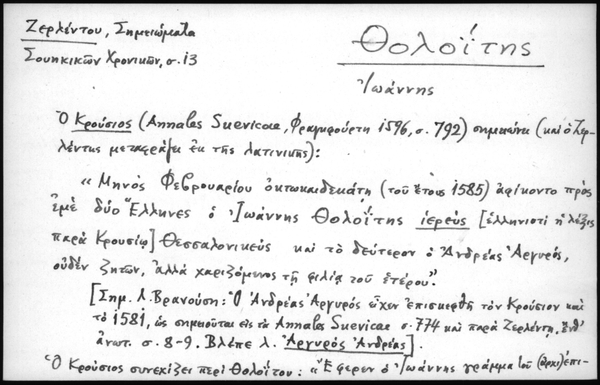 Ζερλέντου, Σημειώματα
Σουηκικῶν Χρονικῶν, σ. 13
Θολοΐτης
Ἰωάννης
Ὁ Κρούσιος (Annales Suevicae, Φραγκφούρτη 1596, σ. 792) σημειώνει (καὶ ὁ Ζερ-
λέντης μεταφράζει ἐκ τῆς λατινικῆς):
« Μηνὸς Φεβρουαρίου ὀκτωκαιδεκάτῃ (τοῦ ἔτους 1585) ἀφίκοντο πρὸς
ἐμὲ δύο Ἕλληνες ὁ Ἰωάννης Θολοΐτης ἱερεὺς [ἑλληνιστὶ ἡ λέξις
παρὰ Κρουσίῳ] Θεσσαλονικεὺς καὶ τὸ δεύτερον ὁ Ἀνδρέας Ἀργυρός,
οὐδὲν ζητῶν, ἀλλὰ χαριζόμενος τῇ φιλίᾳ τοῦ ἑτέρου".
[Σημ. Λ. Βρανούση: Ὁ Ἀνδρέας Ἀργυρὸς εἶχεν ἐπισκεφθῆ τὸν Κρούσιον καὶ
τὸ 1581, ὡς σημειοῦται εἰς τὰ Annales Suevicae σ. 774 καὶ παρὰ Ζερλέντῃ, ἔνθ'
ἀνωτ. σ. 8-9. Βλέπε λ. Ἀργυρὸς Ἀνδρέας].
Ὁ Κρούσιος συνεχίζει περὶ Θολοΐτου: « Ἔφερεν ὁ Ἰωάννης γράμμα τοῦ (ἀρχι)επι-